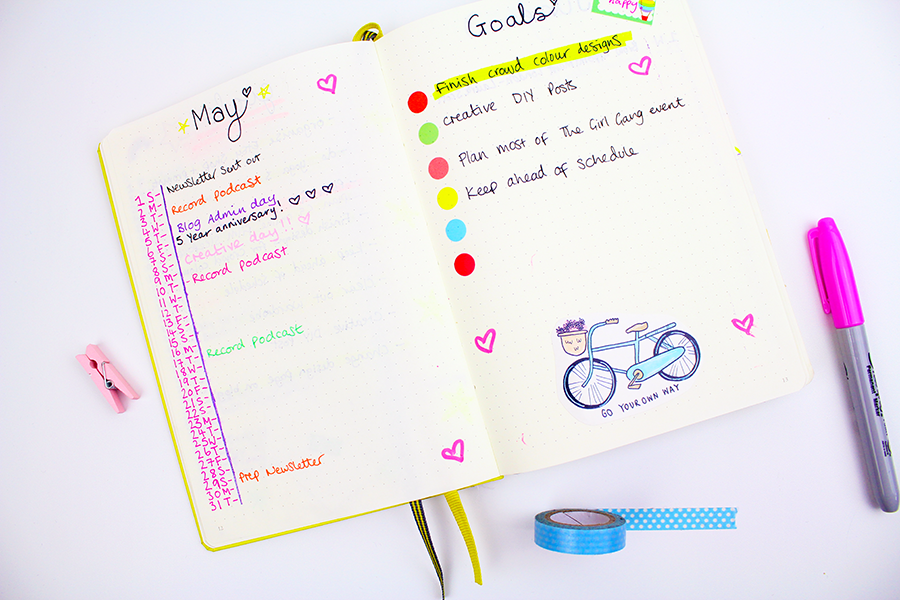 May
1 S- Newsletter Sent out
2 M- Record podcast
3 T-
4 W- Blog Admin day
5 T- 5 Year anniversary!
6 F-
7 S- creative day!!
8 S-
9 M- Record Podcast
10 T-
11 W-
12 T-
13 F-
14 S-
15 S-
16 M- Record podcast
17 T-
18 W-
19 T-
20 F-
21 S-
22 S-
23 M-
24 T-
25 W-
26 T-
27 F-
28 S-
29 S- Prep Newsletter
30 M-
31 T-
Goals
happy
Finish crowd colour designs
creative DIY Posts
Plan most of The Girl Gang event
Keep ahead of Schedule
GO YOUR OWN WAY